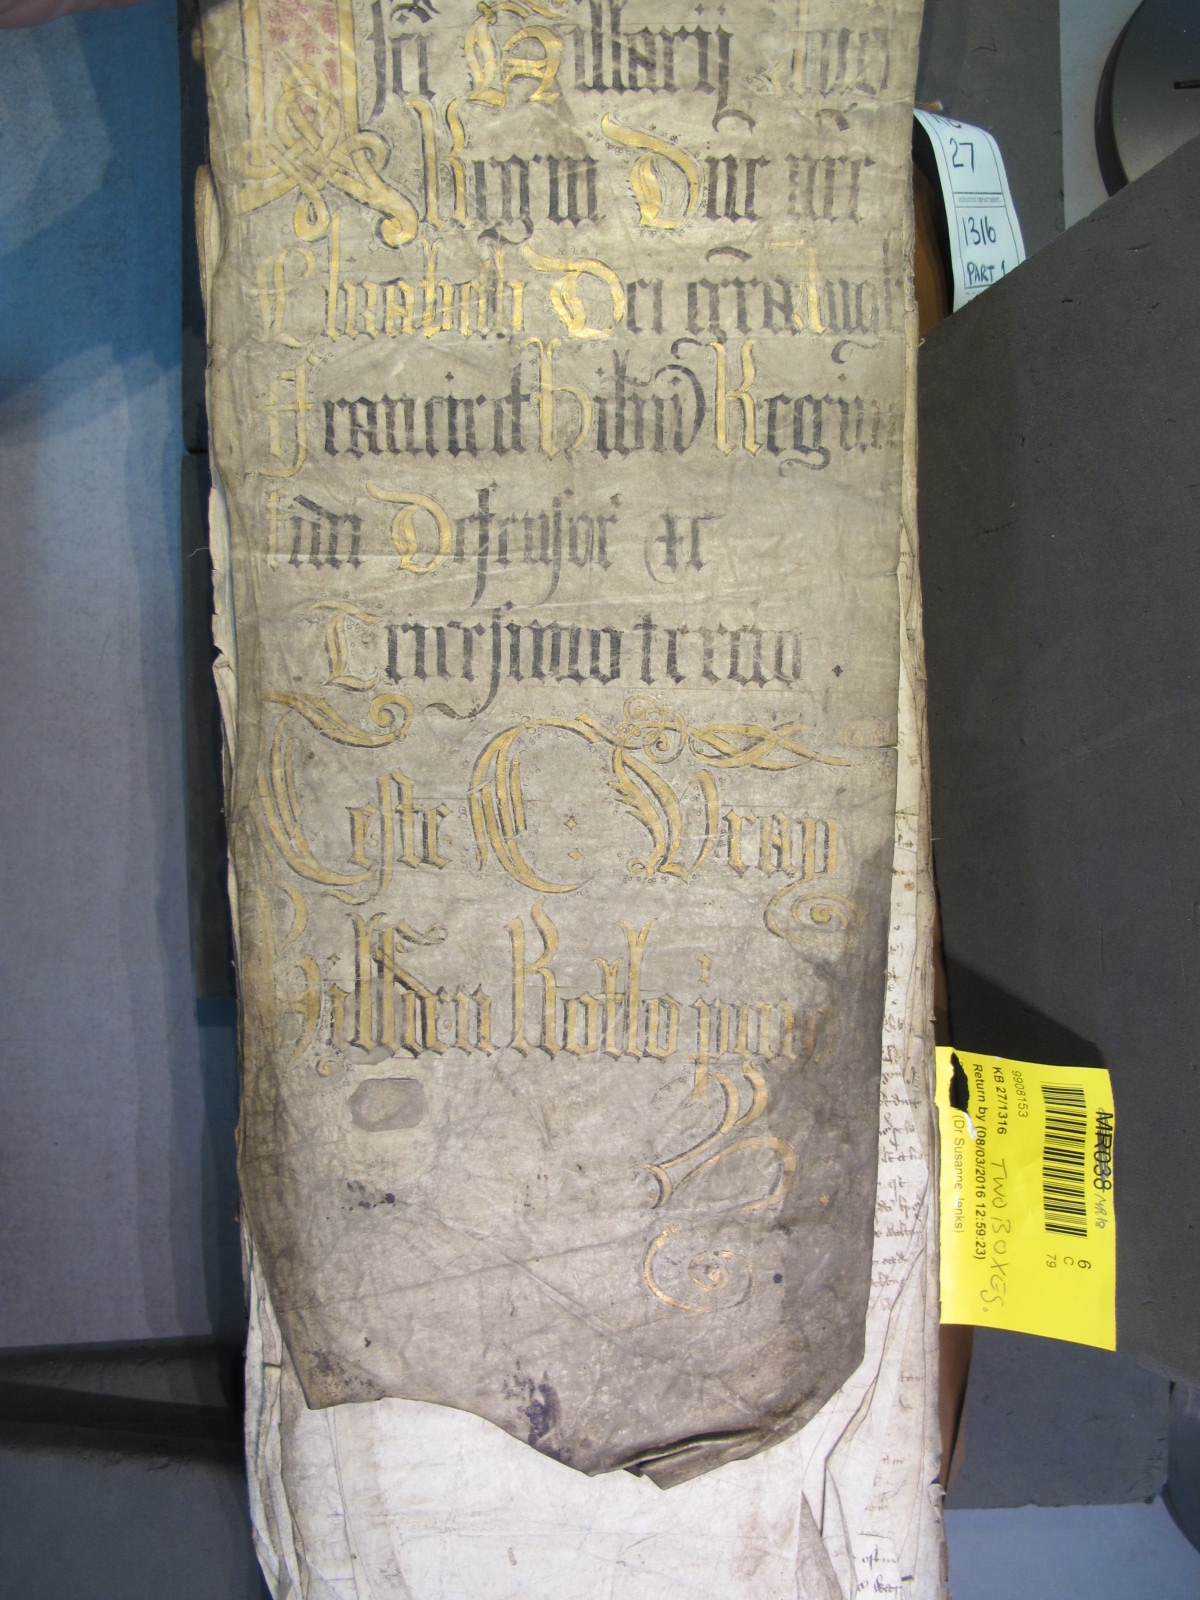 sci Hillarij Anno
Regni Dne nre
Elizabeth Dei gra Angl
Francie et Hibnie Regine
fidei Defensor &c
Tricesimo tercio .
Teste C : Wray
Hillden Rotlo primo
27
1316
PART 1
MR038
9908153
KB 27/1316 TWO BOXES.
Return by (08/03/2016 12:59:23)
(Dr Susanne Jenks)
6
C
79